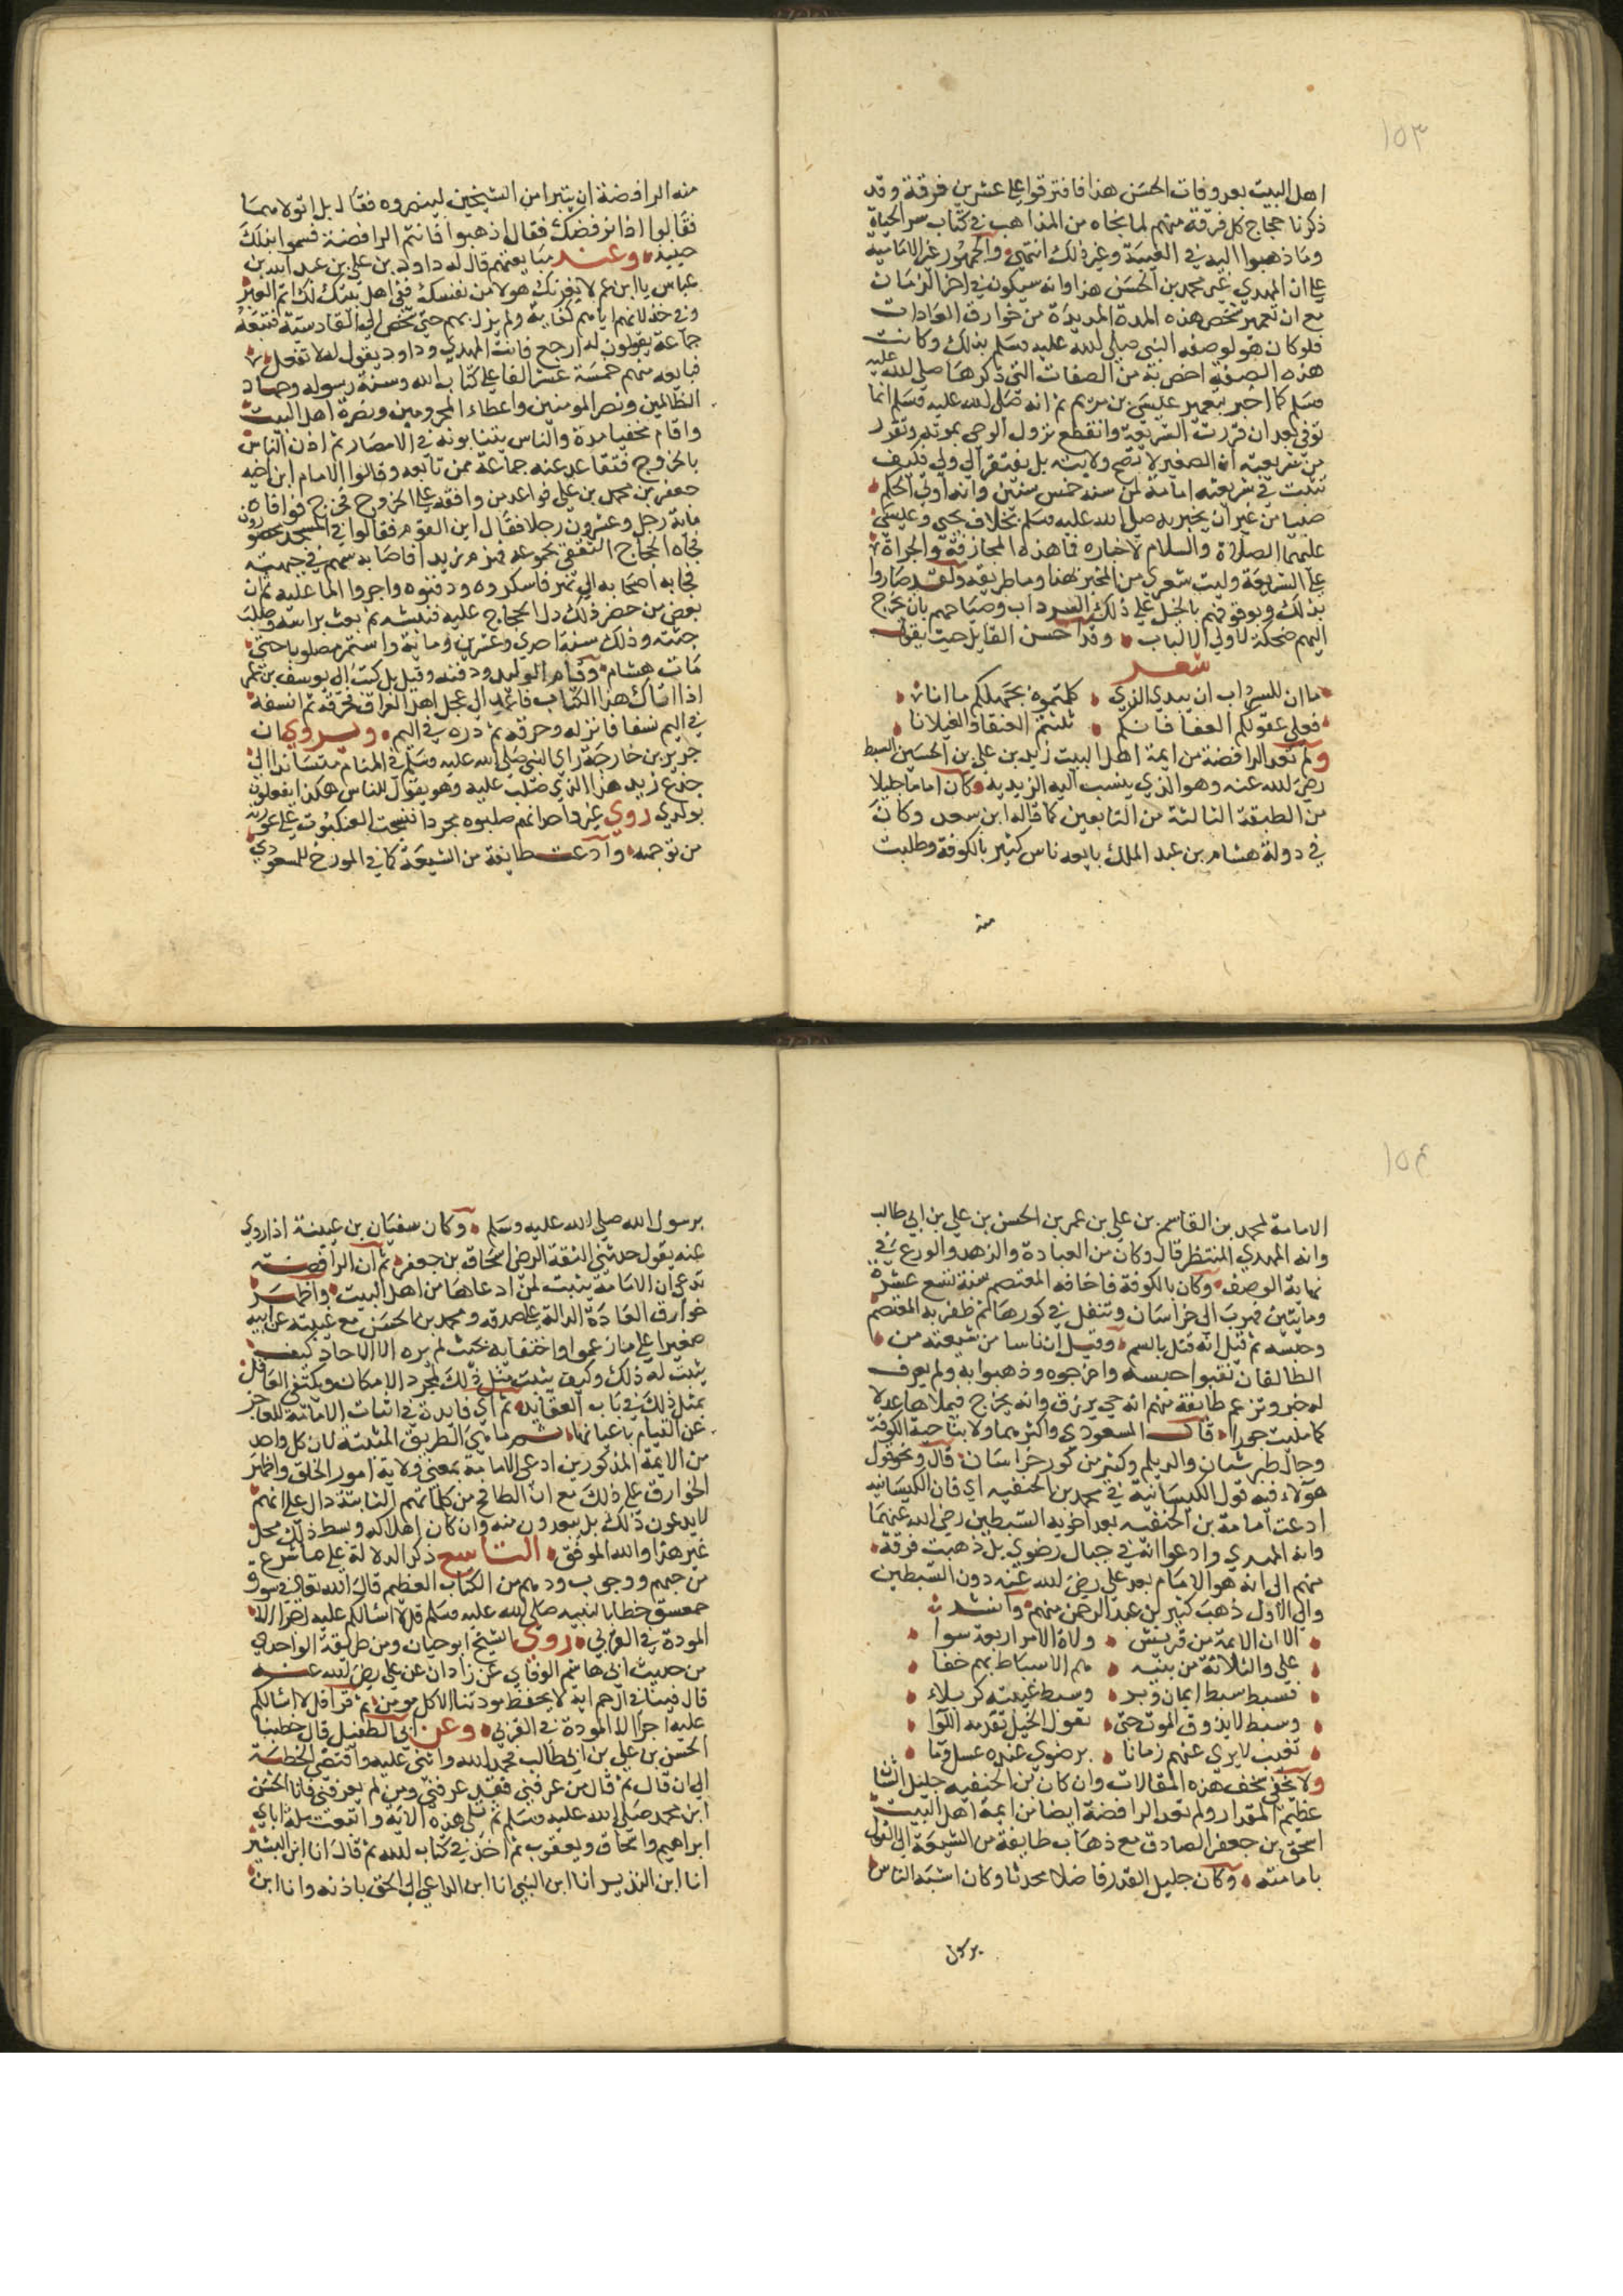 ١٥٣
اهل البيت بعد وفات الحسن هذا فافترقوا على عشرين فرقة وقد
ذكرنا حجاج كل فرقة منهم لما نحاه من المذاهب في كتاب سر الحياة
وما ذهبوا اليه في الغيبة وغير ذلك انتهى والجمهور غير الامامية
على ان المهدي غير محمد بن الحسن هذا وانه سيكون في اخر الزمان
مع ان تعمير شخص هذه المدة المديدة من خوارق العادات
فلو كان هو لوصفه النبي صلى الله عليه وسلم بذلك وكانت
هذه الصفة اخص به من الصفات التي ذكرها صلى الله عليه
وسلم كما اخبر بتعمير عيسى بن مريم ثم انه صلى الله عليه وسلم انما
توفي بعد ان قررت الشريعة وانقطع نزول الوحي بموته وتقرر
من شريعته ان الصغير لا تصح ولايته بل يفتقر الى ولي فكيف
تثبت في شريعته امامة لمن سنه خمس سنين وانه اوتي الحكم
صبيا من غير ان يخبر به صلى الله عليه وسلم بخلاف يحيى وعيسى
عليهما الصلاة والسلام لاخباره فما هذه المجازفة والجراة
على الشريعة وليت شعري من المخبر لهذا وما طريقه ولقد صاروا
بذلك وبوقوفهم بالخيل على ذلك السرداب وصياحهم بان يخرج
اليهم ضحكة لاولي الالباب وقد احسن القايل حيث يقول
شعر
ما ان للسرداب ان يبدي الذي كلمتموه بجهلكم ما انا
فعلى عقولكم العفا فانكم ثلثتم العنقاء والغيلانا
ولم تعد الرافضة من ايمة اهل البيت زايد بن علي بن الحسين السبط
رضي الله عنه وهو الذي ينسب اليه الزيدية وكان اماما جليلا
من الطبقة الثالثة من التابعين كما قاله ابن سعد وكان
في دولة هشام بن عبد الملك بايعه ناس كثير بالكوفة وطلبت
منه
منه الرافضة ان يتبرا من الشيخين لينصروه فقال بل اتولاهما
فقالوا اذا نرفضك فقال اذهبوا فانتم الرافضة فسموا بذلك
حينيذ وعند مبايعتهم قال له داود بن علي بن عبد الله بن
عباس يا ابن عم لا يغرنك هولاء من نفسك ففي اهل بيتك لك اتم العبر
وفي خذلانهم اياهم كفاية ولم يزل بهم حتى شخص الى القادسية فتبعه
جماعة يقولون له ارجع فانت المهدي وداود يقول له لا تفعل
فبايعه منهم خمسة عشر الفا على كتاب الله وسنة رسوله وجهاد
الظالمين ونصر المومنين واعطاء المحرومين ونصرة اهل البيت
واقام مخفيا مدة والناس ينتابونه في الامصار ثم اذن الناس
بالخروج فتقاعد عنه جماعة ممن تابعه وقالوا الامام ابن اخيه
جعفر بن محمد بن علي فواعد من وافقه على الخروج فخرج فوافاه
مائة رجل وعشرون رجلا فقال اين القوم فقالوا في المسجد محصورون
فجاه الحجاج الثقفي بجموعه فهزم زيد اصابه سهم في جبهته
فجا به اصحابه الى نهر فاسكروه ودفنوه واجروا الما عليه ثم ان
بعض من حضر ذلك دل الحجاج عليه فنبشه ثم بعث براسه وصلب
جثته وذلك سنة احدي وعشرين وماية واستمر مصلوبا حتى
مات هشام وقام الوليد ودفنه وقيل بل كتب الى يوسف بن عمر
اذا اتاك هذا الكتاب فاعمد الى عجل اهل العراق فحرقه ثم انسفه
في اليم نسفا فانزله وحرقه ثم ذره في اليم ويروى ان
جرير بن خارجة راي النبي صلى الله عليه وسلم في المنام متساندا الى
جذع زيد هذا الذي صلب عليه وهو يقول للناس هكذا يفعلون
بولدي روى غير واحد انهم صلبوه مجردا فنسجت العنكبوت على عورته
من توجهه وادعت طايفة من الشيعة كما في المورخ للمسعودي
١٥٤
الامامة لمحمد بن القاسم بن علي بن عمر بن الحسن بن علي بن ابي طالب
وانه المهدي المنتظر قال وكان من العبادة والزهد والورع في
نهاية الوصف وكان بالكوفة فاخافه المعتصم سنة تسع عشرة
ومايتين فهرب الى خراسان وتنقل في كورها ثم ظفر به المعتصم
وحبسه ثم قيل انه قتل بالسم وقيل ان ناسا من شيعته من
الطالقان نقبوا حبسه واخرجوه وذهبوا به ولم يعرف
له خبر وتزعم طايفة منهم انه حي يرزق وانه يخرج فيملاها عدلا
كما مليت جورا قال المسعودي واكثرهم اولا بناحية الكوفة
وجال طبرستان والديلم وكثير من كور خراسان قال ونحو قول
هولاء فيه قول الكيسانية في محمد بن الحنفيه اي فان الكيسانيه
ادعت امامة بن الحنفيه بعد اخويه السبطين رضي الله عنهما
وانه المهدي وادعوا انه في جبال رضوي بل ذهبت فرقة
منهم الى انه هو الامام بعد علي رضي الله عنه دون السبطين
والى الاول ذهب كثير بن عبد الرحمن منهم وانشد
الا ان الايمة من قريش ولاة الامر اربعة سوا
علي والثلاثة من بنيه هم الاسباط بهم خفا
فسبط سبط ايمان وبر وسبط غيبته كربلاء
وسبط لا يذوق الموت حتى تقول الخيل تقدمه اللوا
تغيب لا يرى عنهم زمانا برضوى عنده عسل وما
ولا يخفى سخف هذه المقالات وان كان بن الحنفيه جليل الشان
عظيم المقدار ولم تعد الرافضة ايضا من ايمة اهل البيت
اسحق بن جعفر الصادق مع ذهاب طايفة من الشيعة الى القول
بامامته وكان جليل القدر فاضلا محدثا وكان اشبه الناس
برسول
برسول الله صلى الله عليه وسلم وكان سفيان بن عيينة اذا روي
عنه يقول حدثني الثقة الرضي اسحاق بن جعفر ثم ان الرافضة
تدعي ان الامامة يثبت لمن ادعاها من اهل البيت واظهر
خوارق العادة الدالة على صدقه ومحمد بن الحسن مع غيبته عن ابيه
صغيرا على ما زعموا واختفايه بحيث لم يره الا الاحاد كيف
يثبت له ذلك وكيف يثبت مثل ذلك بمجرد الامكان ويكتفي العاقل
بمثل ذلك في باب العقايد ثم اي فايدة في اثبات الامامة للعاجز
عن القيام باعبائها ثم ما هي الطريق المثبتة لان كل واحد
من الايمة المذكورين ادعى الامامة بمعنى ولاية امور الخلق واظهار
الخوارق على ذلك مع ان الطافح من كلماتهم الثابتة دال على انهم
لا يدعون ذلك بل يبعدون منه وان كان اهلا له وبسط ذلك محل
غير هذا والله الموفق التاسع ذكر الدلالة على ما شرع
من حبهم ووجوب ودهم من الكتاب العظيم قال الله تعالى في سورة
حمعسق خطابا لنبيه صلى الله عليه وسلم قل لا اسالكم عليه اجرا الا
المودة في القربى روى الشيخ ابو حيان ومن طريقه الواحدي
من حديث ابي هاشم عن زاذان عن علي رضي الله عنه
قال فينا في ال حم اية لا يحفظ مودتنا الا كل مومن ثم قرا قل لا اسالكم
عليه اجرا الا المودة في القربى وعن ابي الطفيل قال خطبنا
الحسن بن علي بن ابي طالب فحمد الله واثنى عليه واقتضى الخطبة
الى ان قال ثم قال من عرفني فقد عرفني ومن لم يعرفني فانا الحسن
ابن محمد صلى الله عليه وسلم ثم تلى هذه الاية واتبعت ملة اباي
ابراهيم واسحاق ويعقوب ثم اخذ في كتاب الله ثم قال انا ابن البشير
انا ابن النذير انا ابن النبي انا ابن الداعي الى الحق باذنه وانا ابن